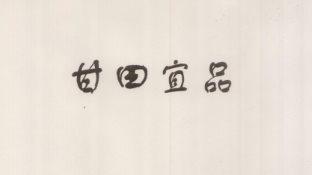 甘田宜品